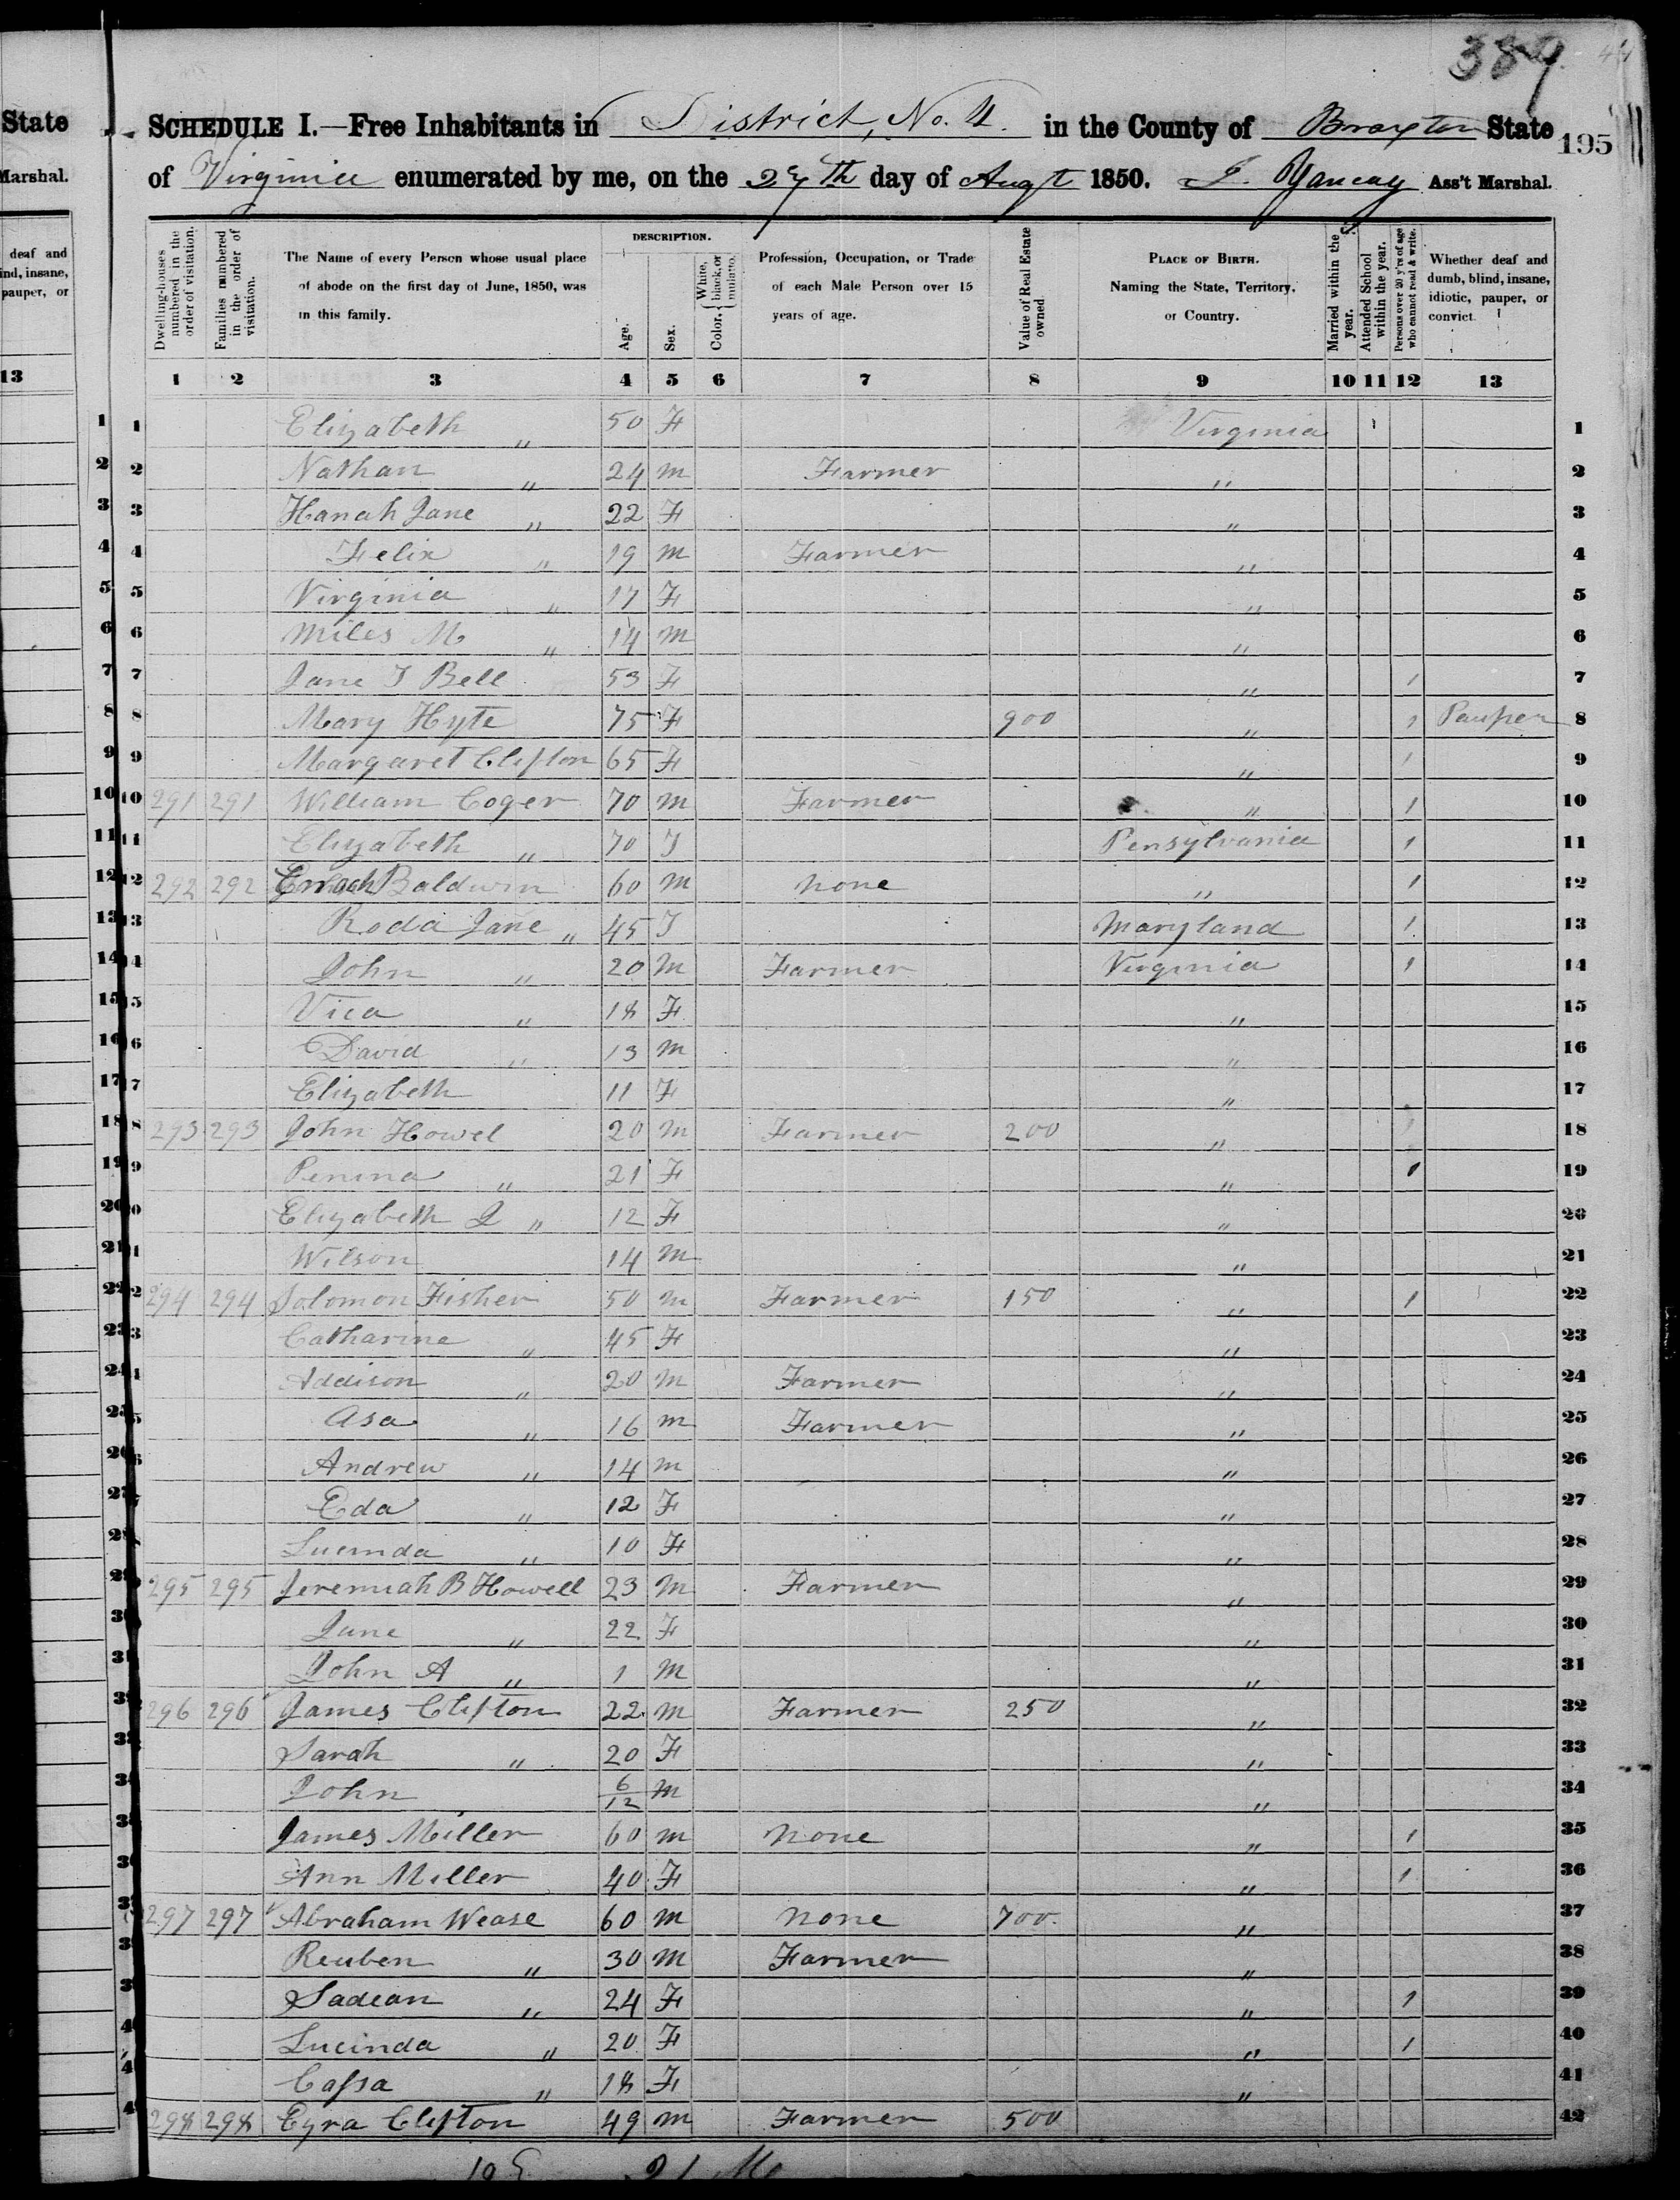 389
State
Marshal.
deaf and
ind, insane,
pauper, or
13
SCHEDULE I.—Free Inhabitants in District, No. 4. in the County of Braxton State
195
of Virginia enumerated by me, on the 27th day of Augt 1850. J. Yancey Ass't Marshal.
Dwelling-houses numbered in the order of visitation.
Families numbered in the order of visitation.
The Name of every Person whose usual place of abode on the first day of June, 1850, was in this family.
DESCRIPTION.
Age.
Sex.
Color, { White, black, or mulatto.
Profession, Occupation, or Trade of each Male Person over 15 years of age.
Value of Real Estate owned.
PLACE OF BIRTH. Naming the State, Territory, or Country.
Married within the year.
Attended School within the year.
Persons over 20 y'rs of age who cannot read & write.
Whether deaf and dumb, blind, insane, idiotic, pauper, or convict.
1 2 3 4 5 6 7 8 9 10 11 12 13
1 Elizabeth " 50 F Virginia 1
2 Nathan " 24 m Farmer " 2
3 Hanah Jane " 22 F " 3
4 Felix " 19 m Farmer " 4
5 Virginia " 17 F " 5
6 Miles M " 14 m " 6
7 Jane T Bell 53 F " 1 7
8 Mary Hyte 75 F 900 " 1 Pauper 8
9 Margaret Clifton 65 F " 1 9
10 291 291 William Coger 70 m Farmer " 1 10
11 Elizabeth " 70 F Pensylvania 1 11
12 292 292 Enoch Baldwin 60 m none " 1 12
13 Roda Jane " 45 F Maryland 1 13
14 John " 20 m Farmer Virginia 1 14
15 Vica " 18 F " 15
16 David " 13 m " 16
17 Elizabeth 11 F " 17
18 293 293 John Howel 20 m Farmer 200 " 1 18
19 Penina " 21 F " 1 19
20 Elizabeth J " 12 F " 20
21 Wilson 14 m " 21
22 294 294 Solomon Fisher 50 m Farmer 150 " 1 22
23 Catharine " 45 F " 23
24 Addison " 20 m Farmer " 24
25 Asa " 16 m Farmer " 25
26 Andrew " 14 m " 26
27 Eda " 12 F " 27
28 Lucinda " 10 F " 28
29 295 295 Jeremiah B Howell 23 m Farmer " 29
30 Jane " 22 F " 30
31 John A " 1 m " 31
32 296 296 James Clifton 22 m Farmer 250 " 32
33 Sarah " 20 F " 33
34 John 6/12 m " 34
35 James Miller 60 m none " 1 35
36 Ann Miller 40 F " 1 36
37 297 297 Abraham Wease 60 m none 700. " 37
38 Reuben " 30 m Farmer " 38
39 Sadean " 24 F " 1 39
40 Lucinda " 20 F " 1 40
41 Cassa " 18 F " 41
42 298 298 Ezra Clifton 49 m Farmer 500 42